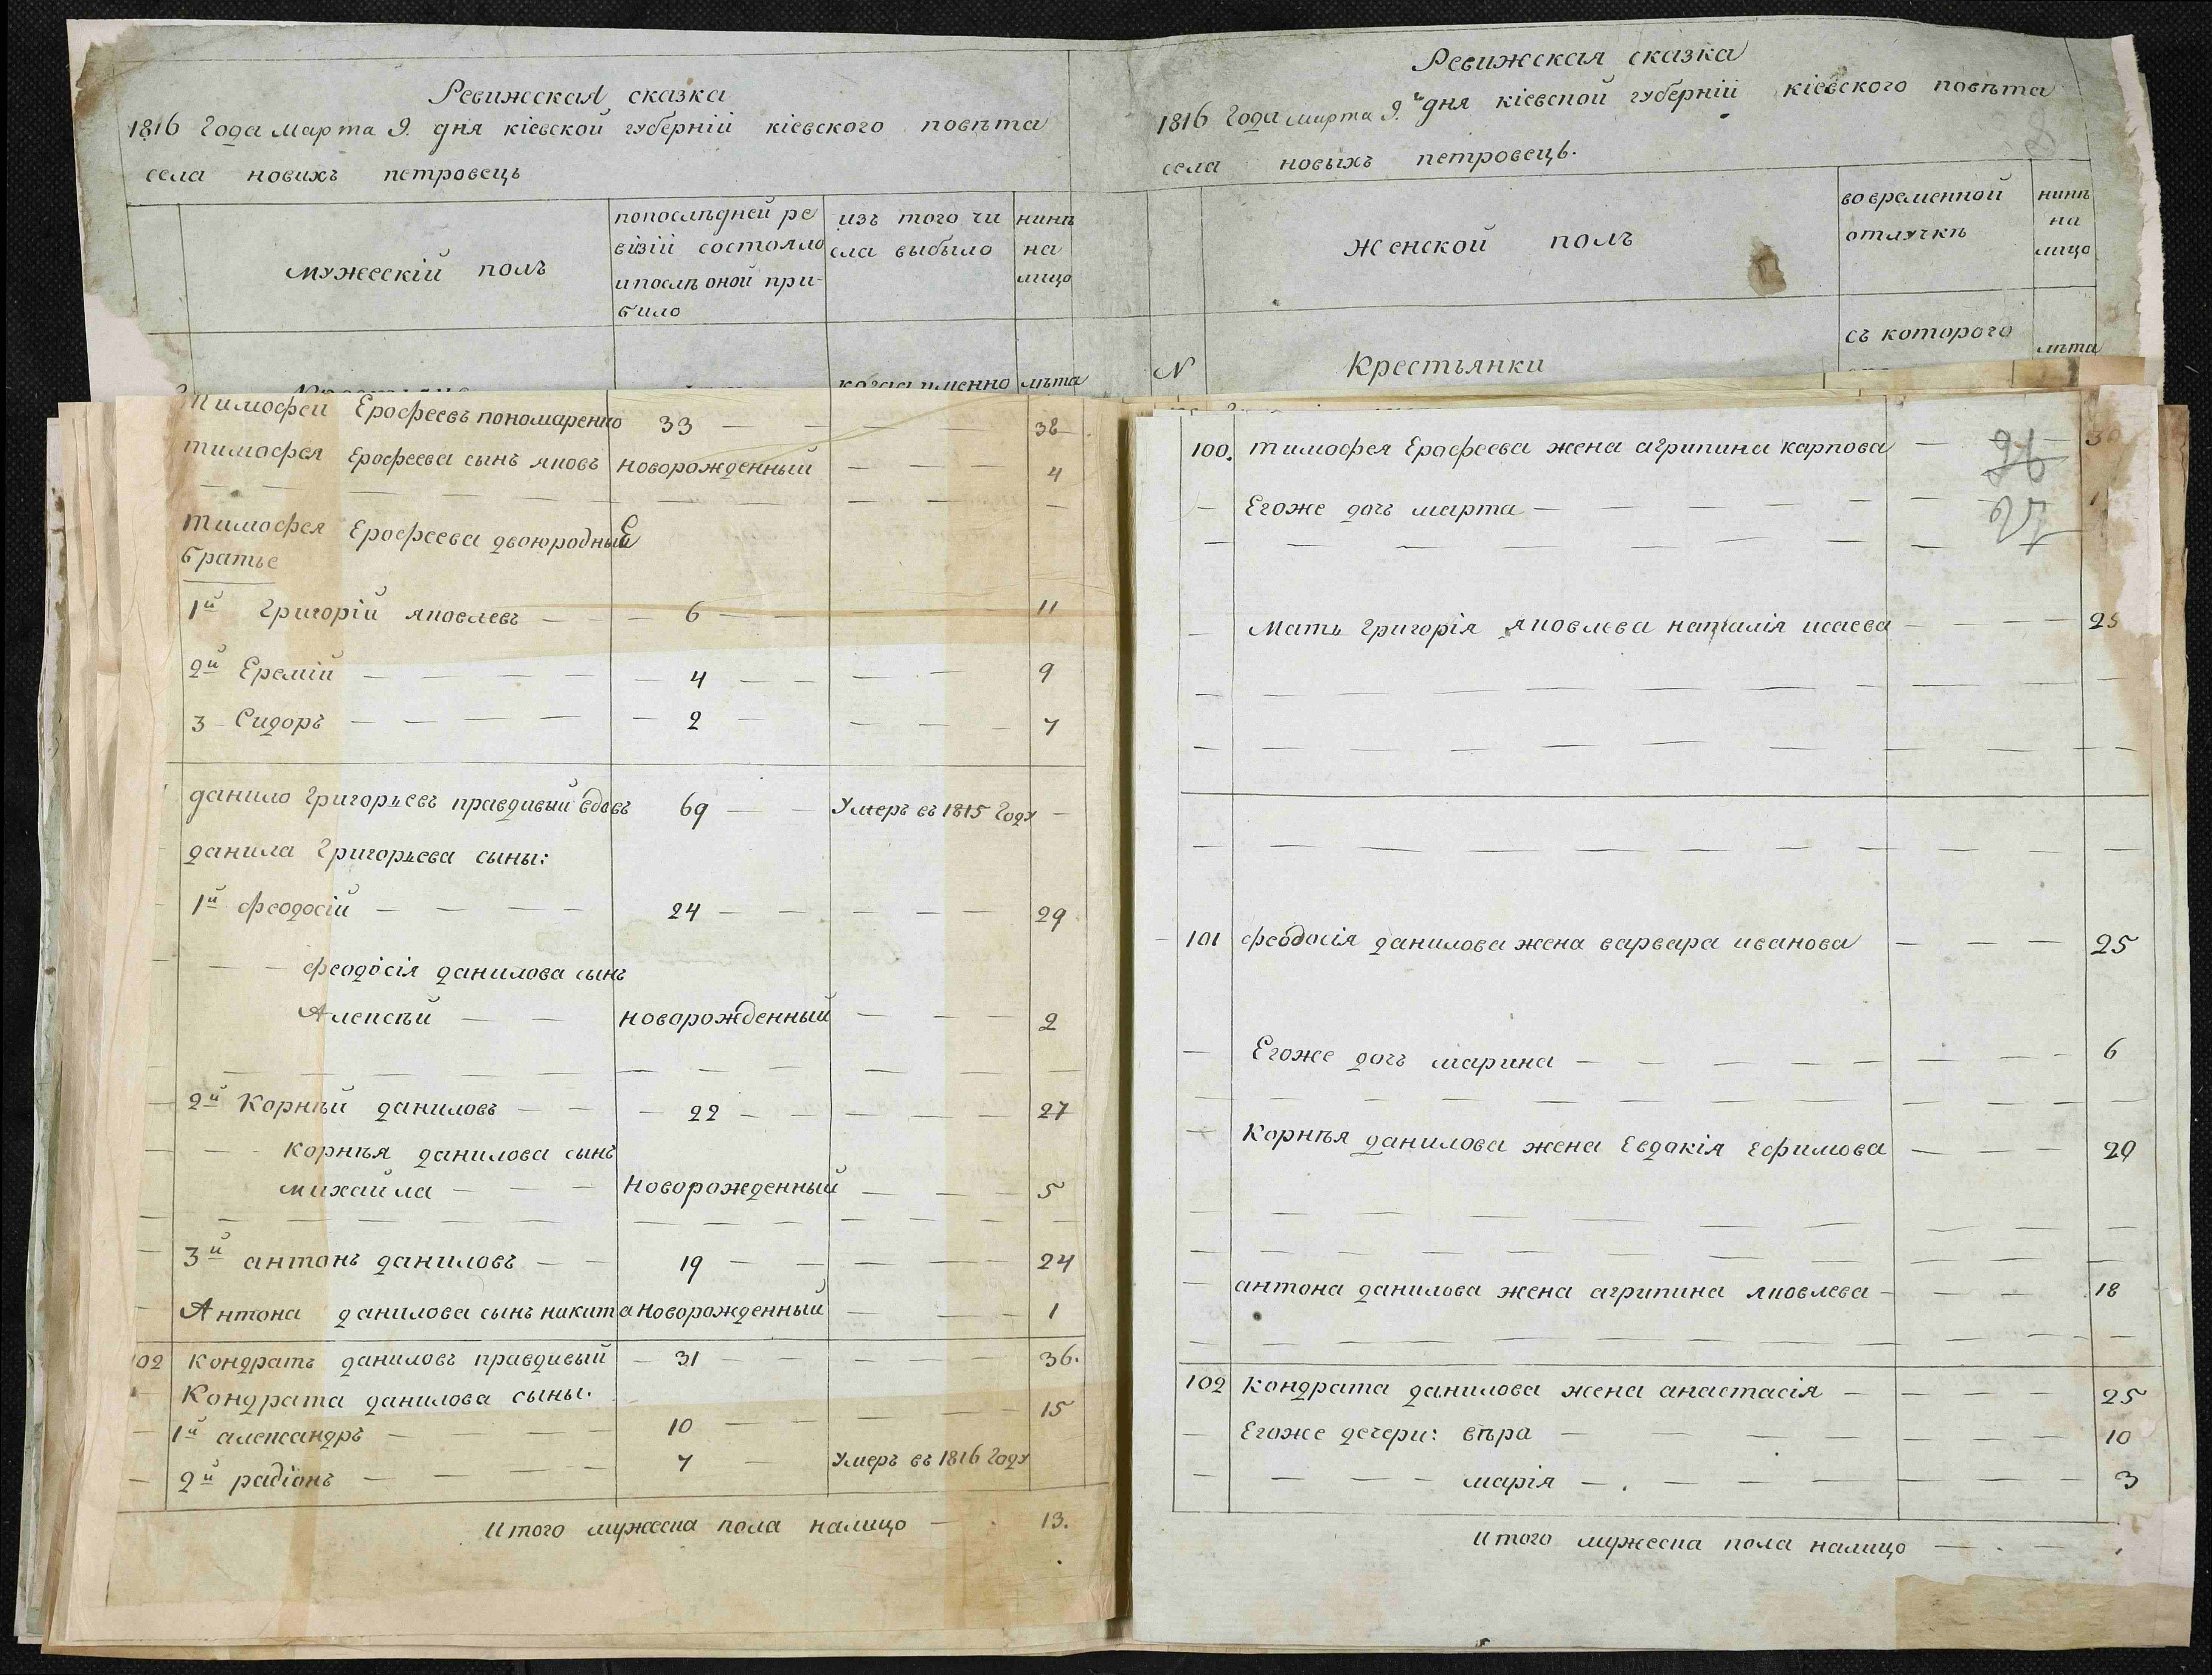 Ревижская сказка
1816 года марта 9. дня кіевской губерніи кіевского повѣта
села новихъ петровець
мужескій полъ
попослѣдней ре
визіи состояло
ипослѣ оной при-
било
изъ того чи
сла выбыло
нинѣ
на
лицо
когда именно
лѣта
Тимофей Ерофеевъ пономаренко 33 — — — — 38
тимофея Ерофеева сынъ яковъ новорожденный — — — 4
Тимофея Ерофеева двоюродные
братье
1й Григорій яковлевъ — — 6 — 11
2й Еремій — — — — — 4 — — — — 9
3 Сидоръ — — — — — 2 — — — — 7
данило Григорьевъ правдивый вдовъ 69 — — Умеръ въ 1815 Году —
данила Григорьева сыны:
1й феодосій — — — — 24 — — — — — 29
— — феодосія данилова сынъ
Алексѣй — — новорожденный — — — 2
2й Корнѣй даниловъ — — — 22 — — — — — 27
— — Корнѣя данилова сынъ
михайла — — — Новорожденный — — — 5
3й антонъ даниловъ — — 19 — — — — — 24
Антона данилова сынъ никита новорожденный — — 1
102 кондратъ даниловъ правдивый — 31 — — — — 36.
Кондрата данилова сыны.
1й александръ — — — — 10 — — — — — 15
2й радіонъ — — — — 7 — Умеръ въ 1816 Году
Итого мужеска пола налицо — . 13.
Ревижская сказка
1816 Года марта 9.г дня кіевской губерніи кіевского повѣта
села новыхъ петровець.
женской полъ
вовременной
отлучкѣ
нинѣ
на
лицо
N
Крестьянки
съ которого
лѣта
100. тимофея Ерофеева жена агрипина карпова — 30
26
— Егоже дочь марта — — — — — — —
27
— Мать григорія яковлева наталія исаева — — — —
101 феодосія данилова жена варвара иванова — — — 25
— Егоже дочь марина — — — — — — — — 6
— Корнѣя данилова жена Евдокія Ефимова — — — 20
— антона данилова жена агрипина яковлева — — — 18
102 кондрата данилова жена анастасія — — — — 25
— Егоже дечери: вѣра — — — — — — — — 10
— — — — марія — . — — — — — — 3
Итого мужеска пола налицо — . —